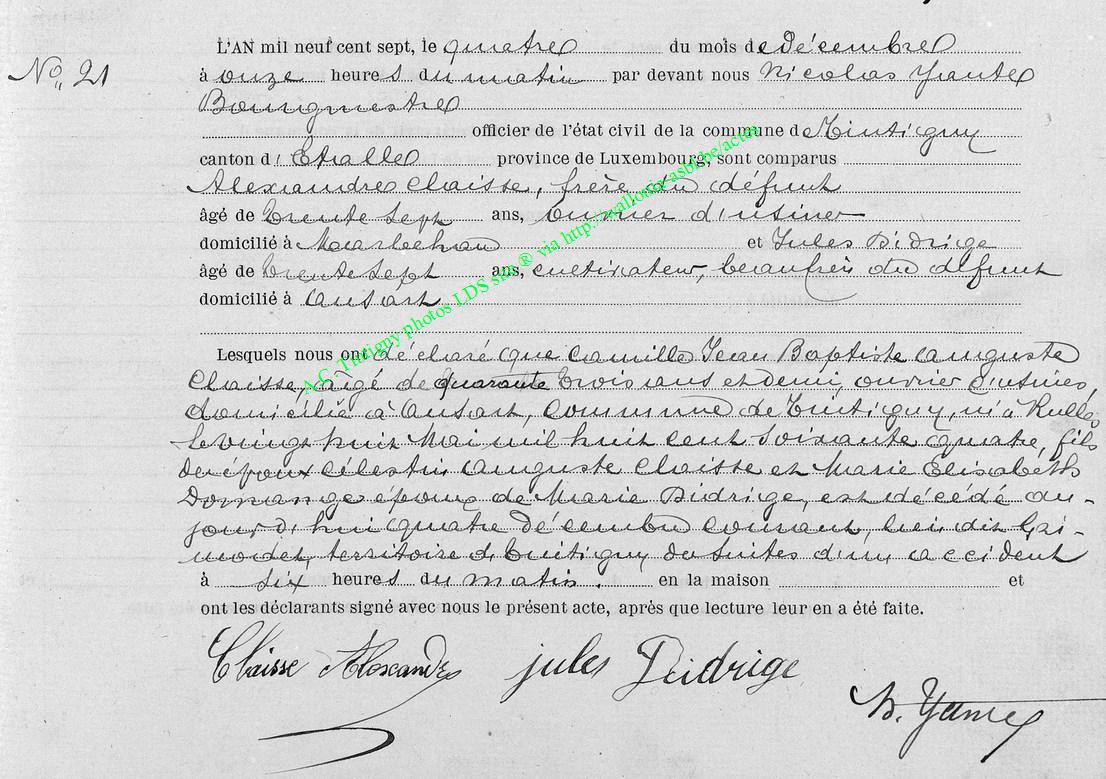 L'AN mil neuf cent sept, le quatre du mois de décembre
No 21
à onze heures du matin par devant nous Nicolas Yante
Bourgmestre
officier de l'état civil de la commune de Tintigny
canton d'Etalle province de Luxembourg, sont comparus
Alexandre Claisse, frère du défunt
âgé de trente sept ans, ouvrier d'usines
domicilié à Marbehan et Jules Didrige
âgé de trente sept ans, cultivateur, beaufrère du défunt
domicilié à Ansart
Lesquels nous ont déclaré que Camille Jean Baptiste Auguste
Claisse, âgé de quarante trois ans et demi, ouvrier d'usines,
domicilié à Ansart, commune de Tintigny, né à Rulles
le vingt huit Mai mil huit cent soixante quatre, fils
des époux Célestin Auguste Claisse et Marie Elisabeth
Domange époux de Marie Didrige, est décédé au-
jourd'hui quatre décembre courant, lieu dit Gri-
modet, territoire de Tintigny des suites d'un accident
à six heures du matin. en la maison et
ont les déclarants signé avec nous le présent acte, après que lecture leur en a été faite.
Claisse Alexandre jules Didrige
N. Yante
A.C. Tintigny photos LDS site ® via http://wallonia-asbl.be/actes